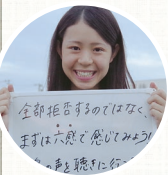 全部拒否するのではなく、
まずは六感で感じてみよう!
の声を聴きに行こ